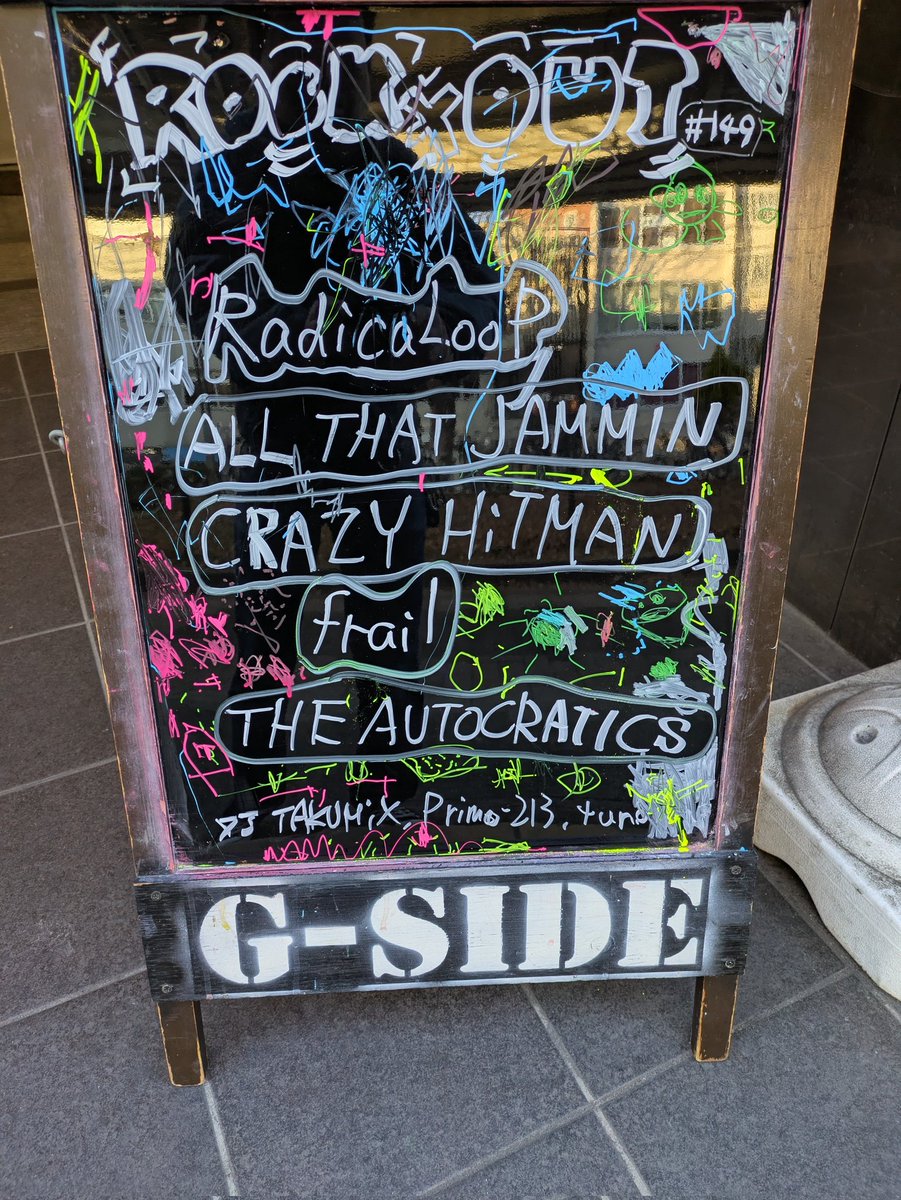 ROCK OUT
#149
RadicaLooP
ALL THAT JAMMIN
CRAZY HiTMAN
frail
THE AUTOCRATICS
DJ TAKUMiX, Primo-213, tuna
G-SIDE